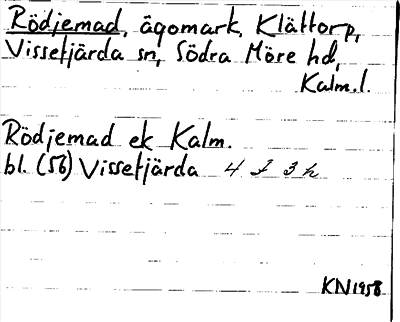 Rödjemad, ägomark, Klättorp,
Vissefjärda sn, Södra Möre hd,
Kalm.l.
Rödjemad ek Kalm.
bl. (56) Vissefjärda 4 I 3 h
KN 1958